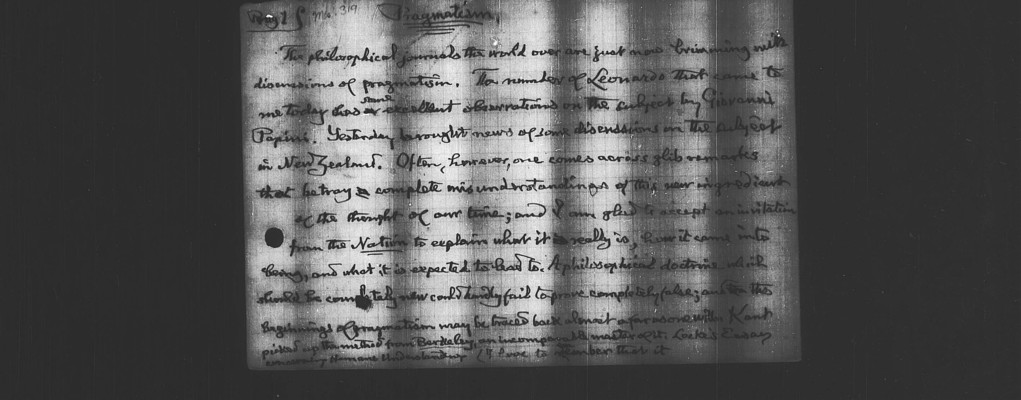 Pragmatism.
The philosophical journals the world over are just now brimming with
discussions of pragmatism. The number of Leonardo that came to
me today has some excellent observations on the subject by Giovanni
Papini. Yesterday brought news of some discussions on the subject
in New Zealand. Often, however, one comes across glib remarks
that betray complete misunderstandings of this new ingredient
of the thought of our time; and I am glad to accept an invitation
from the Nation to explain what it really is, how it came into
being, and what it is expected to lead to. A philosophical doctrine which
should be completely new could hardly fail to prove completely false; and the
beginnings of pragmatism may be traced back almost as far as one Kant
picked up the method from Berkeley, an incomparable master of it. Locke's Essay
concerning Humane Understanding I love to remember that it